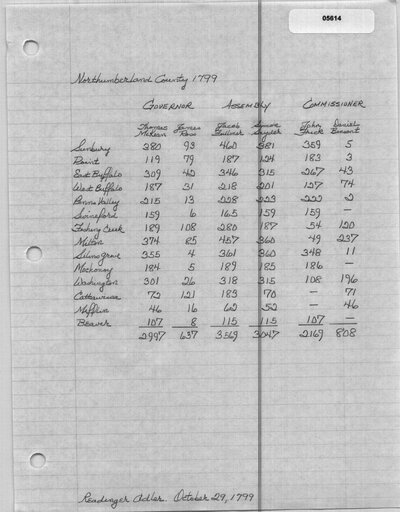 05614
Northumberland County 1799
GOVERNOR ASSEMBLY COMMISSIONER
Thomas James Jacob Simon John Daniel
McKean Ross Snyder
Sunbury 280 93 460 381 359 5
Point 119 79 187 124 183 3
East Buffalo 309 42 346 315 267 43
West Buffalo 187 31 218 201 127 74
Penns Valley 215 13 228 223 222 2
Swineford 159 6 165 159 159 -
Fishing Creek 189 108 280 187 54 120
Milton 374 85 457 360 49 237
Selinsgrove 355 4 361 360 348 11
Mackonoy 184 5 189 185 186 -
Washington 301 26 318 315 108 196
Cattawissa 72 121 183 70 - 71
Mifflin 46 16 62 52 - 46
Beaver 107 8 115 115 107 -
2997 637 3569 3047 2169 808
Readinger Adler. October 29, 1799